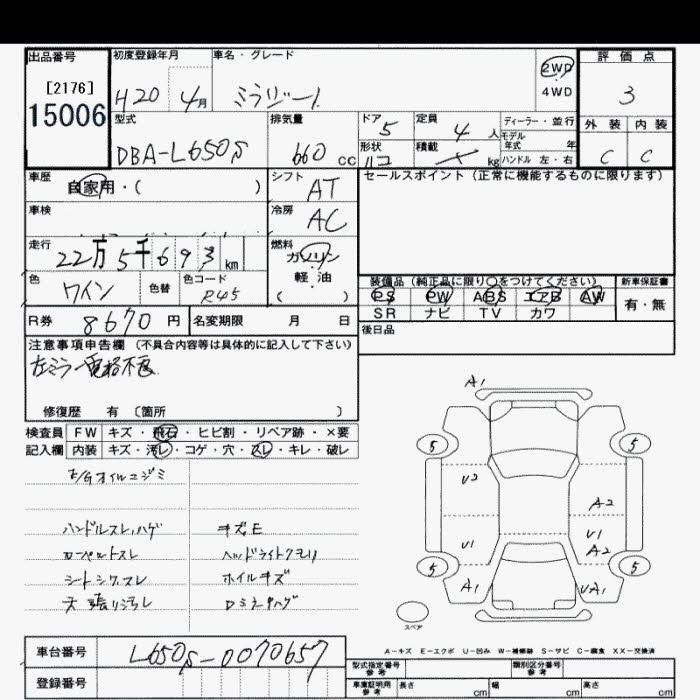 出品番号 初度登録年月 車名・グレード 2WD 評価点
[2176] 4WD
15006 H20 4月 ミラジーノ 3
型式 排気量 ドア 定員 ディーラー・並行 外装 内装
DBA-L650S 660 cc 5 4人 モデル年式 年 C C
形状 積載 kg ハンドル 左・右
車歴 自家用・( ) シフト AT セールスポイント (正常に機能するものに限ります)
車検 冷房 AC
走行 22万5千693km 燃料 ガソリン・軽油 ( )
色 ワイン 色替 色コード R45
装備品 (純正品に限り○をつけてください) 新車保証書
PS PW ABS エアB AW 有・無
SR ナビ TV カワ
R券 8670円 名変期限 月 日 後日品
注意事項申告欄 (不具合内容等は具体的に記入して下さい)
左ミラー電格不良
修復歴 有 〔箇所 〕
検査員 FW キズ・飛石・ヒビ割・リペア跡・×要
記入欄 内装 キズ・汚レ・コゲ・穴・スレ・キレ・破レ
E/Gオイルニジミ
ハンドルスレ,ハゲ キズE
カーペットスレ ヘッドライトクモリ
シートシワ,スレ ホイルキズ
天張リ汚レ Dミラーハゲ
A1
5 5
U2 A2
U1 U1 A2
5 5
A1 UA1
スペア
A-キズ E-エクボ U-凹み W-補修跡 S-サビ C-腐食 XX-交換済
車台番号 L650S-0070657
登録番号
型式指定番号 参考 類別区分番号 参考
車庫証明用 参考 長さ cm 幅 cm 高さ cm